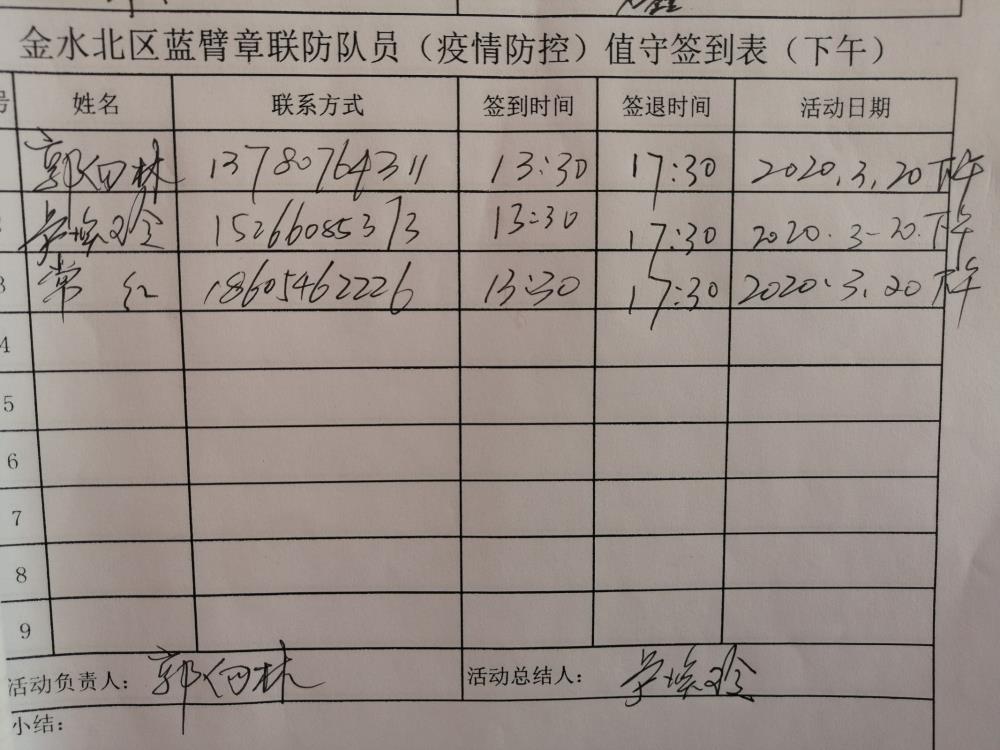 金水北区蓝臂章联防队员（疫情防控）值守签到表（下午）
号 姓名 联系方式 签到时间 签退时间 活动日期
郭伯林 13780764311 13:30 17:30 2020.3.20下午
15266085373 13:30 17:30 2020.3-20.下午
3 常红 18605462226 13:30 17:30 2020.3.20下午
4
5
6
7
8
9
活动负责人：郭伯林 活动总结人：
小结：